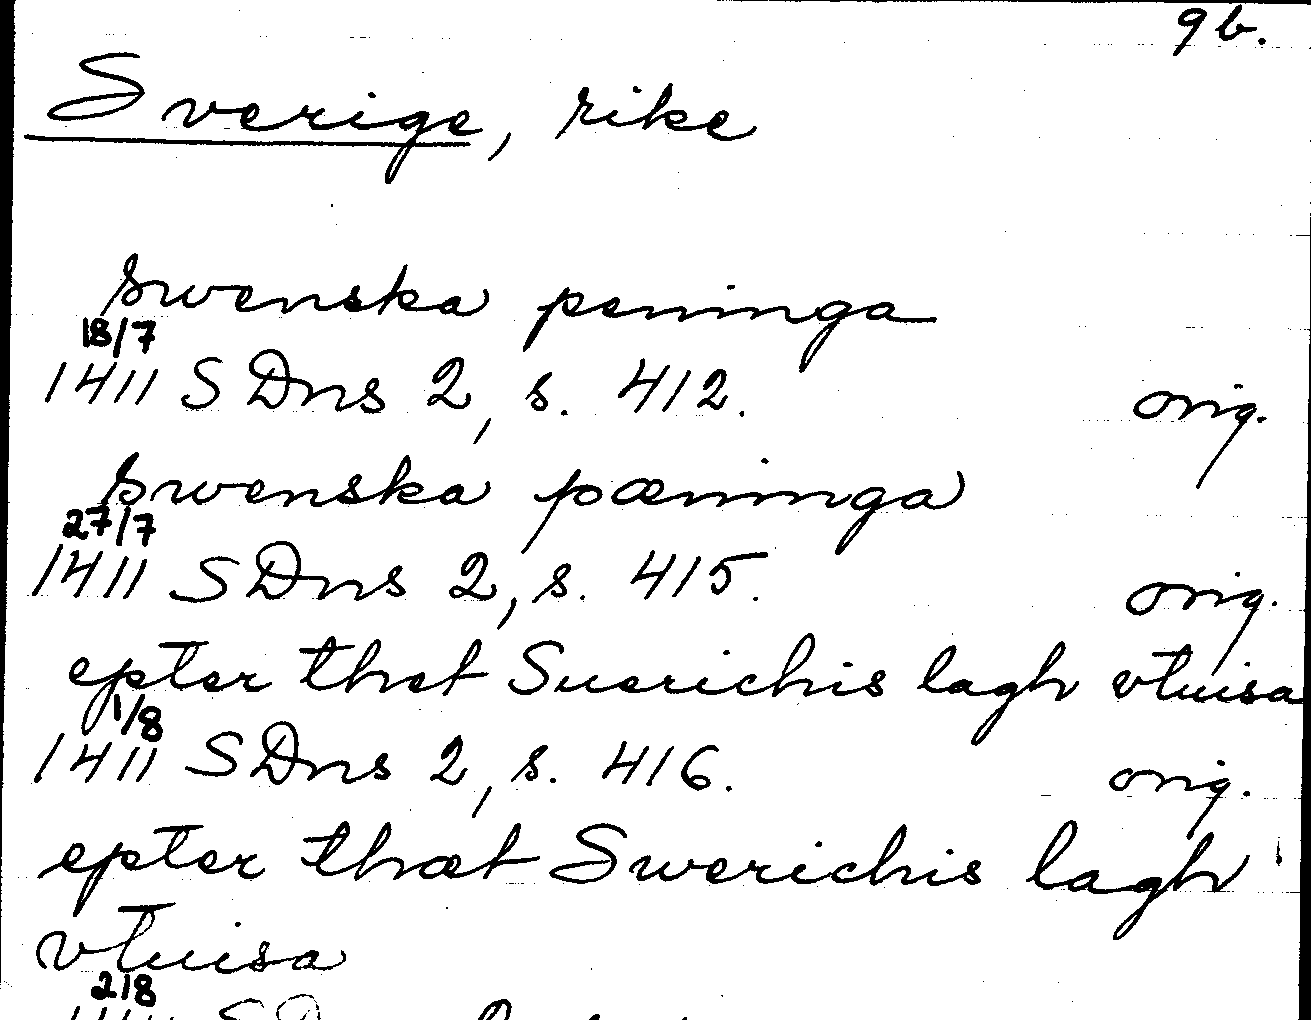 9b.
Sverige, rike
swenska peninga
18/7
1411 SDns 2, s. 412. orig.
swenska pæninga
27/7
1411 SDns 2, s. 415. orig.
epter thet Suerichis lagh vtuisa
1/8
1411 SDns 2, s. 416. orig.
epter thæt Swerichis lagh
vtuisa
2/8